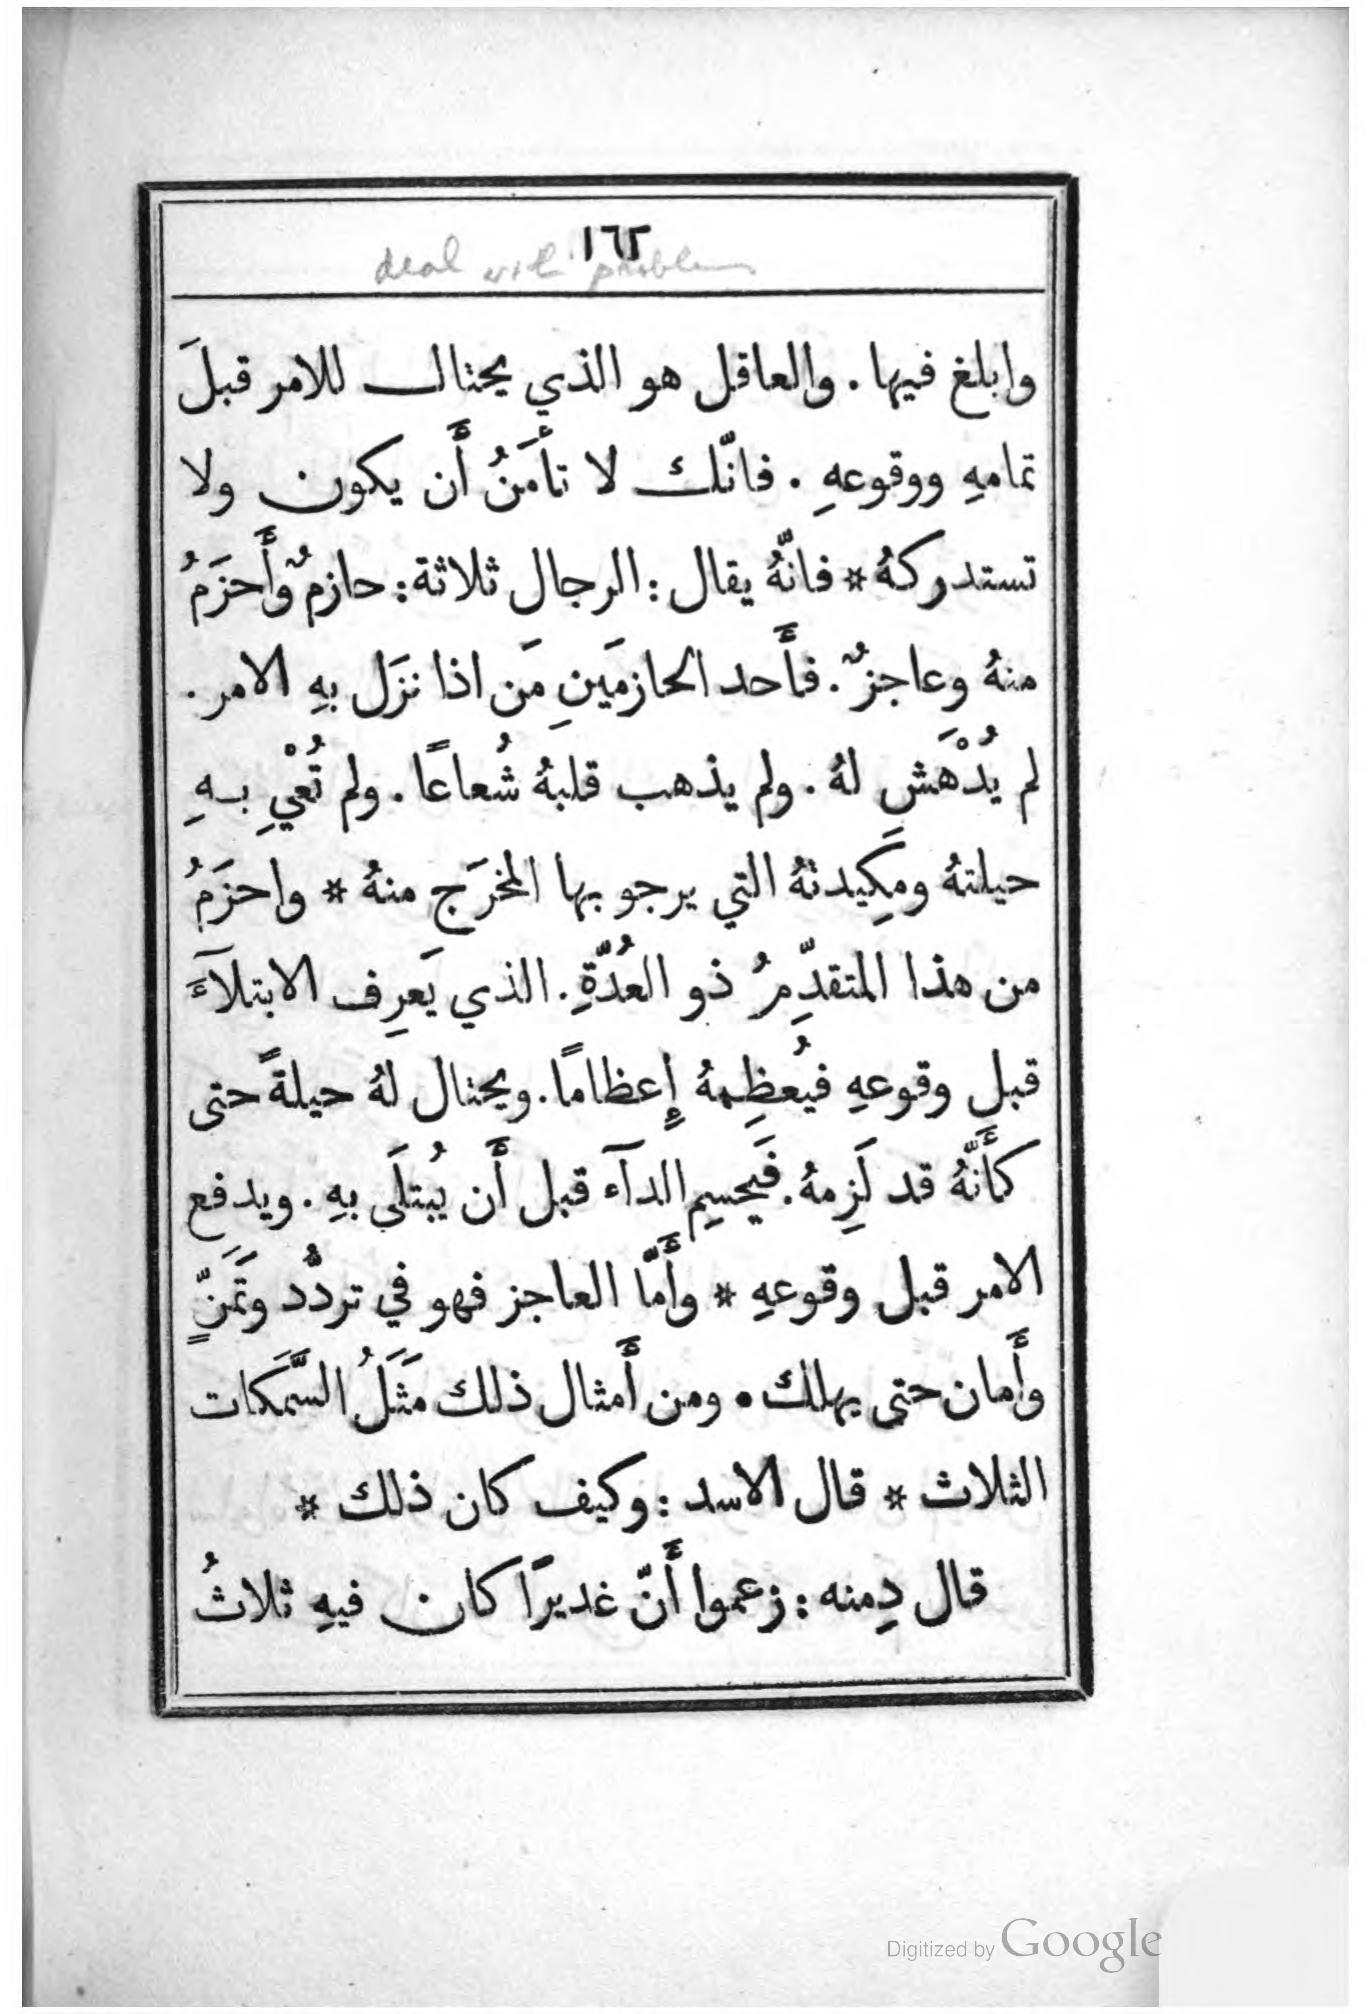 ١٦٢
deal with problems
وابلغ فيها . والعاقل هو الذي يحتال للامر قبلَ
تمامهِ ووقوعهِ . فانّك لا تأمَنُ أَن يكون ولا
تستدركهُ * فانّهُ يقال : الرجال ثلاثة : حازمٌ وأَحزَمُ
منهُ وعاجزٌ . فأَحد الحازمَينِ مَن اذا نزَل بهِ الامر .
لم يُدْهَش لهُ . ولم يذهب قلبهُ شُعاعًا . ولم تُعْيِ بـهِ
حيلتهُ ومَكِيدتهُ التي يرجو بها المخرَج منهُ * واحزَمُ
من هذا المتقدِّمُ ذو العُدَّةِ . الذي يَعرِف الابتلآءَ
قبل وقوعهِ فيُعظِمهُ إِعظامًا . ويحتال لهُ حيلةً حتى
كأَنَّهُ قد لَزِمهُ . فَيحسِم الدآء قبل أَن يُبتلَى بهِ . ويدفع
الامر قبل وقوعهِ * وأَمَّا العاجز فهو في تردُّد وتَمَنٍّ
وأَمان حتى يهلك . ومن أَمثال ذلك مَثَلُ السَّمَكات
الثلاث * قال الاسد : وكيف كان ذلك *
قال دِمنه : زعموا أَنّ غديرًا كان فيهِ ثلاثُ
Digitized by Google